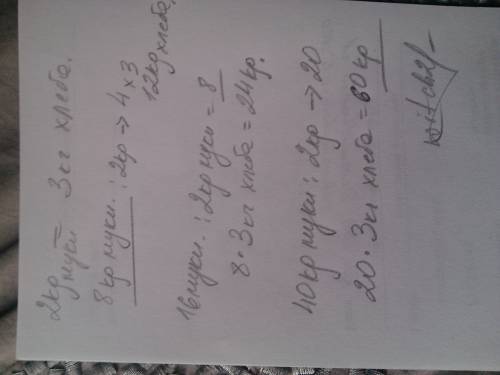 2кg муки = 3кг хлеба.
8кg муки : 2кg → 4 × 3
12кg хлеба,
16 муки : 2кg муки = 8
8 · 3кг хлеба = 24кg.
40кg муки : 2кg → 20
20 · 3кг хлеба = 60кg